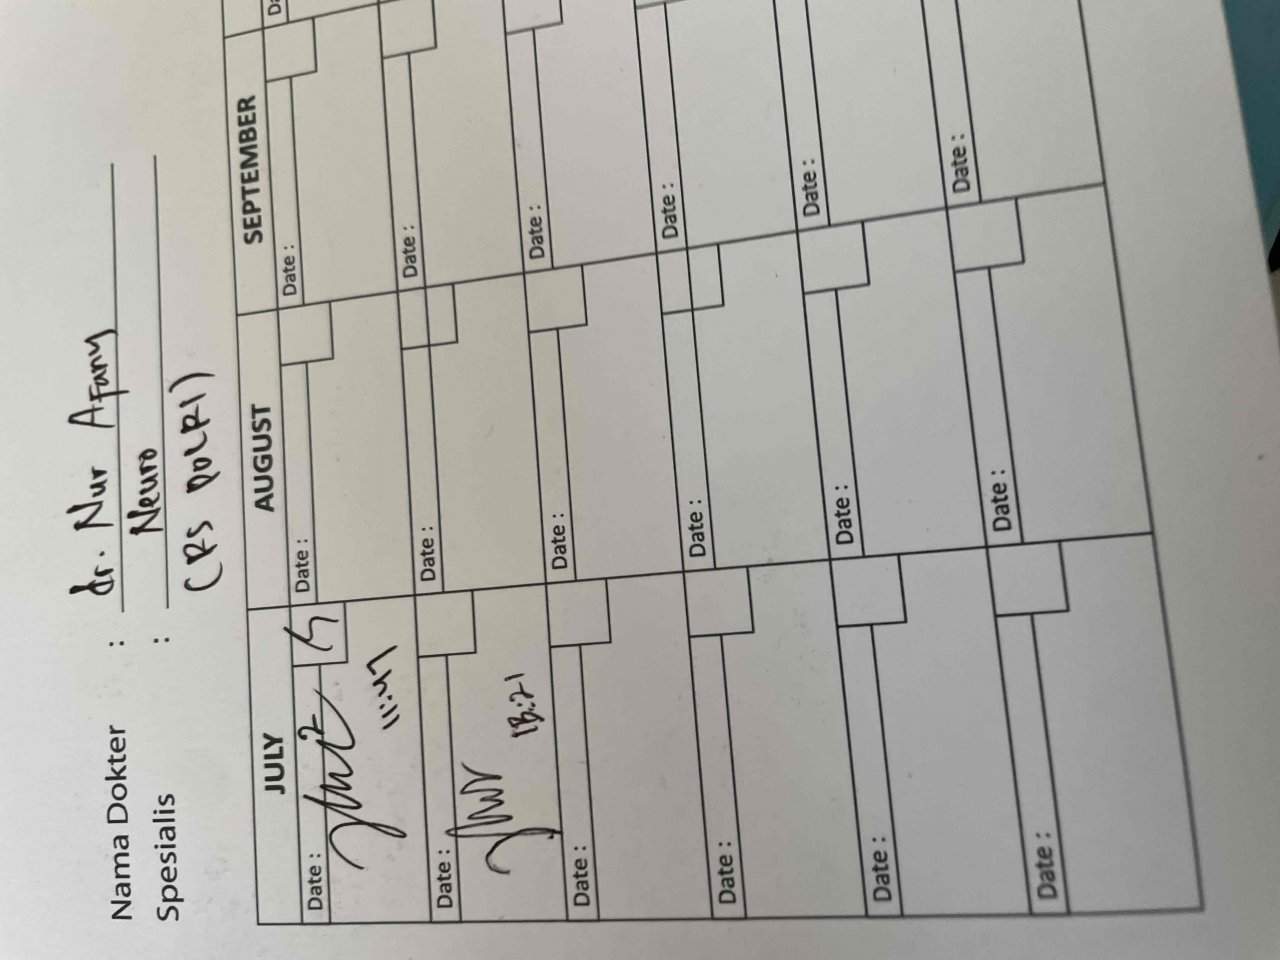 Nama Dokter : dr. Nur Afany
Spesialis : Neuro
(RS POLRI)
JULY AUGUST SEPTEMBER
Date : Date : Date : Da
11:47
Date : Date : Date :
13:21
Date : Date : Date :
Date : Date : Date :
Date : Date : Date :
Date : Date : Date :